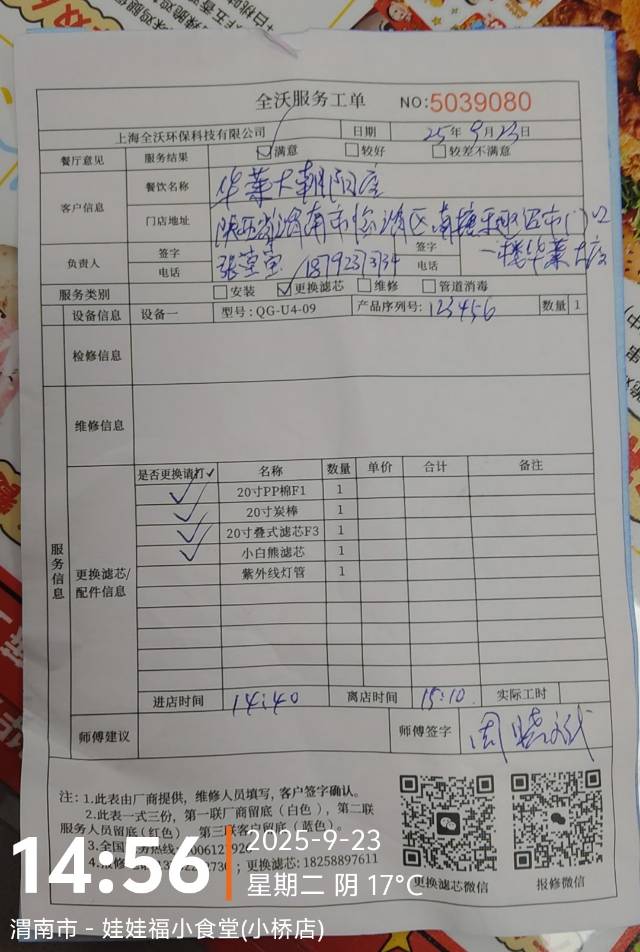 全沃服务工单 NO:5039080
上海全沃环保科技有限公司 日期 25年9月23日
餐厅意见 服务结果 满意 较好 较差不满意
客户信息 餐饮名称 华莱士朝阳店
门店地址 陕西省渭南市临渭区南塘
一楼华莱士店
负责人 签字 签字
电话 电话
服务类别 安装 更换滤芯 维修 管道消毒
设备信息 设备一 型号:QG-U4-09 产品序列号: 123456 数量 1
检修信息
维修信息
服务信息
更换滤芯/配件信息
是否更换请打✓ 名称 数量 单价 合计 备注
✓ 20寸PP棉F1 1
✓ 20寸炭棒 1
✓ 20寸叠式滤芯F3 1
✓ 小白熊滤芯 1
紫外线灯管 1
进店时间 14:40 离店时间 15:10 实际工时
师傅建议 师傅签字
注:1.此表由厂商提供，维修人员填写，客户签字确认。
2.此表一式三份，第一联厂商留底（白色），第二联
服务人员留底（红色） 第三联客户留底（蓝色）。
3.全国
4.报修 ；更换滤芯:18258897611
更换滤芯微信 报修微信
14:56 2025-9-23
星期二 阴 17℃
渭南市 - 娃娃福小食堂(小桥店)